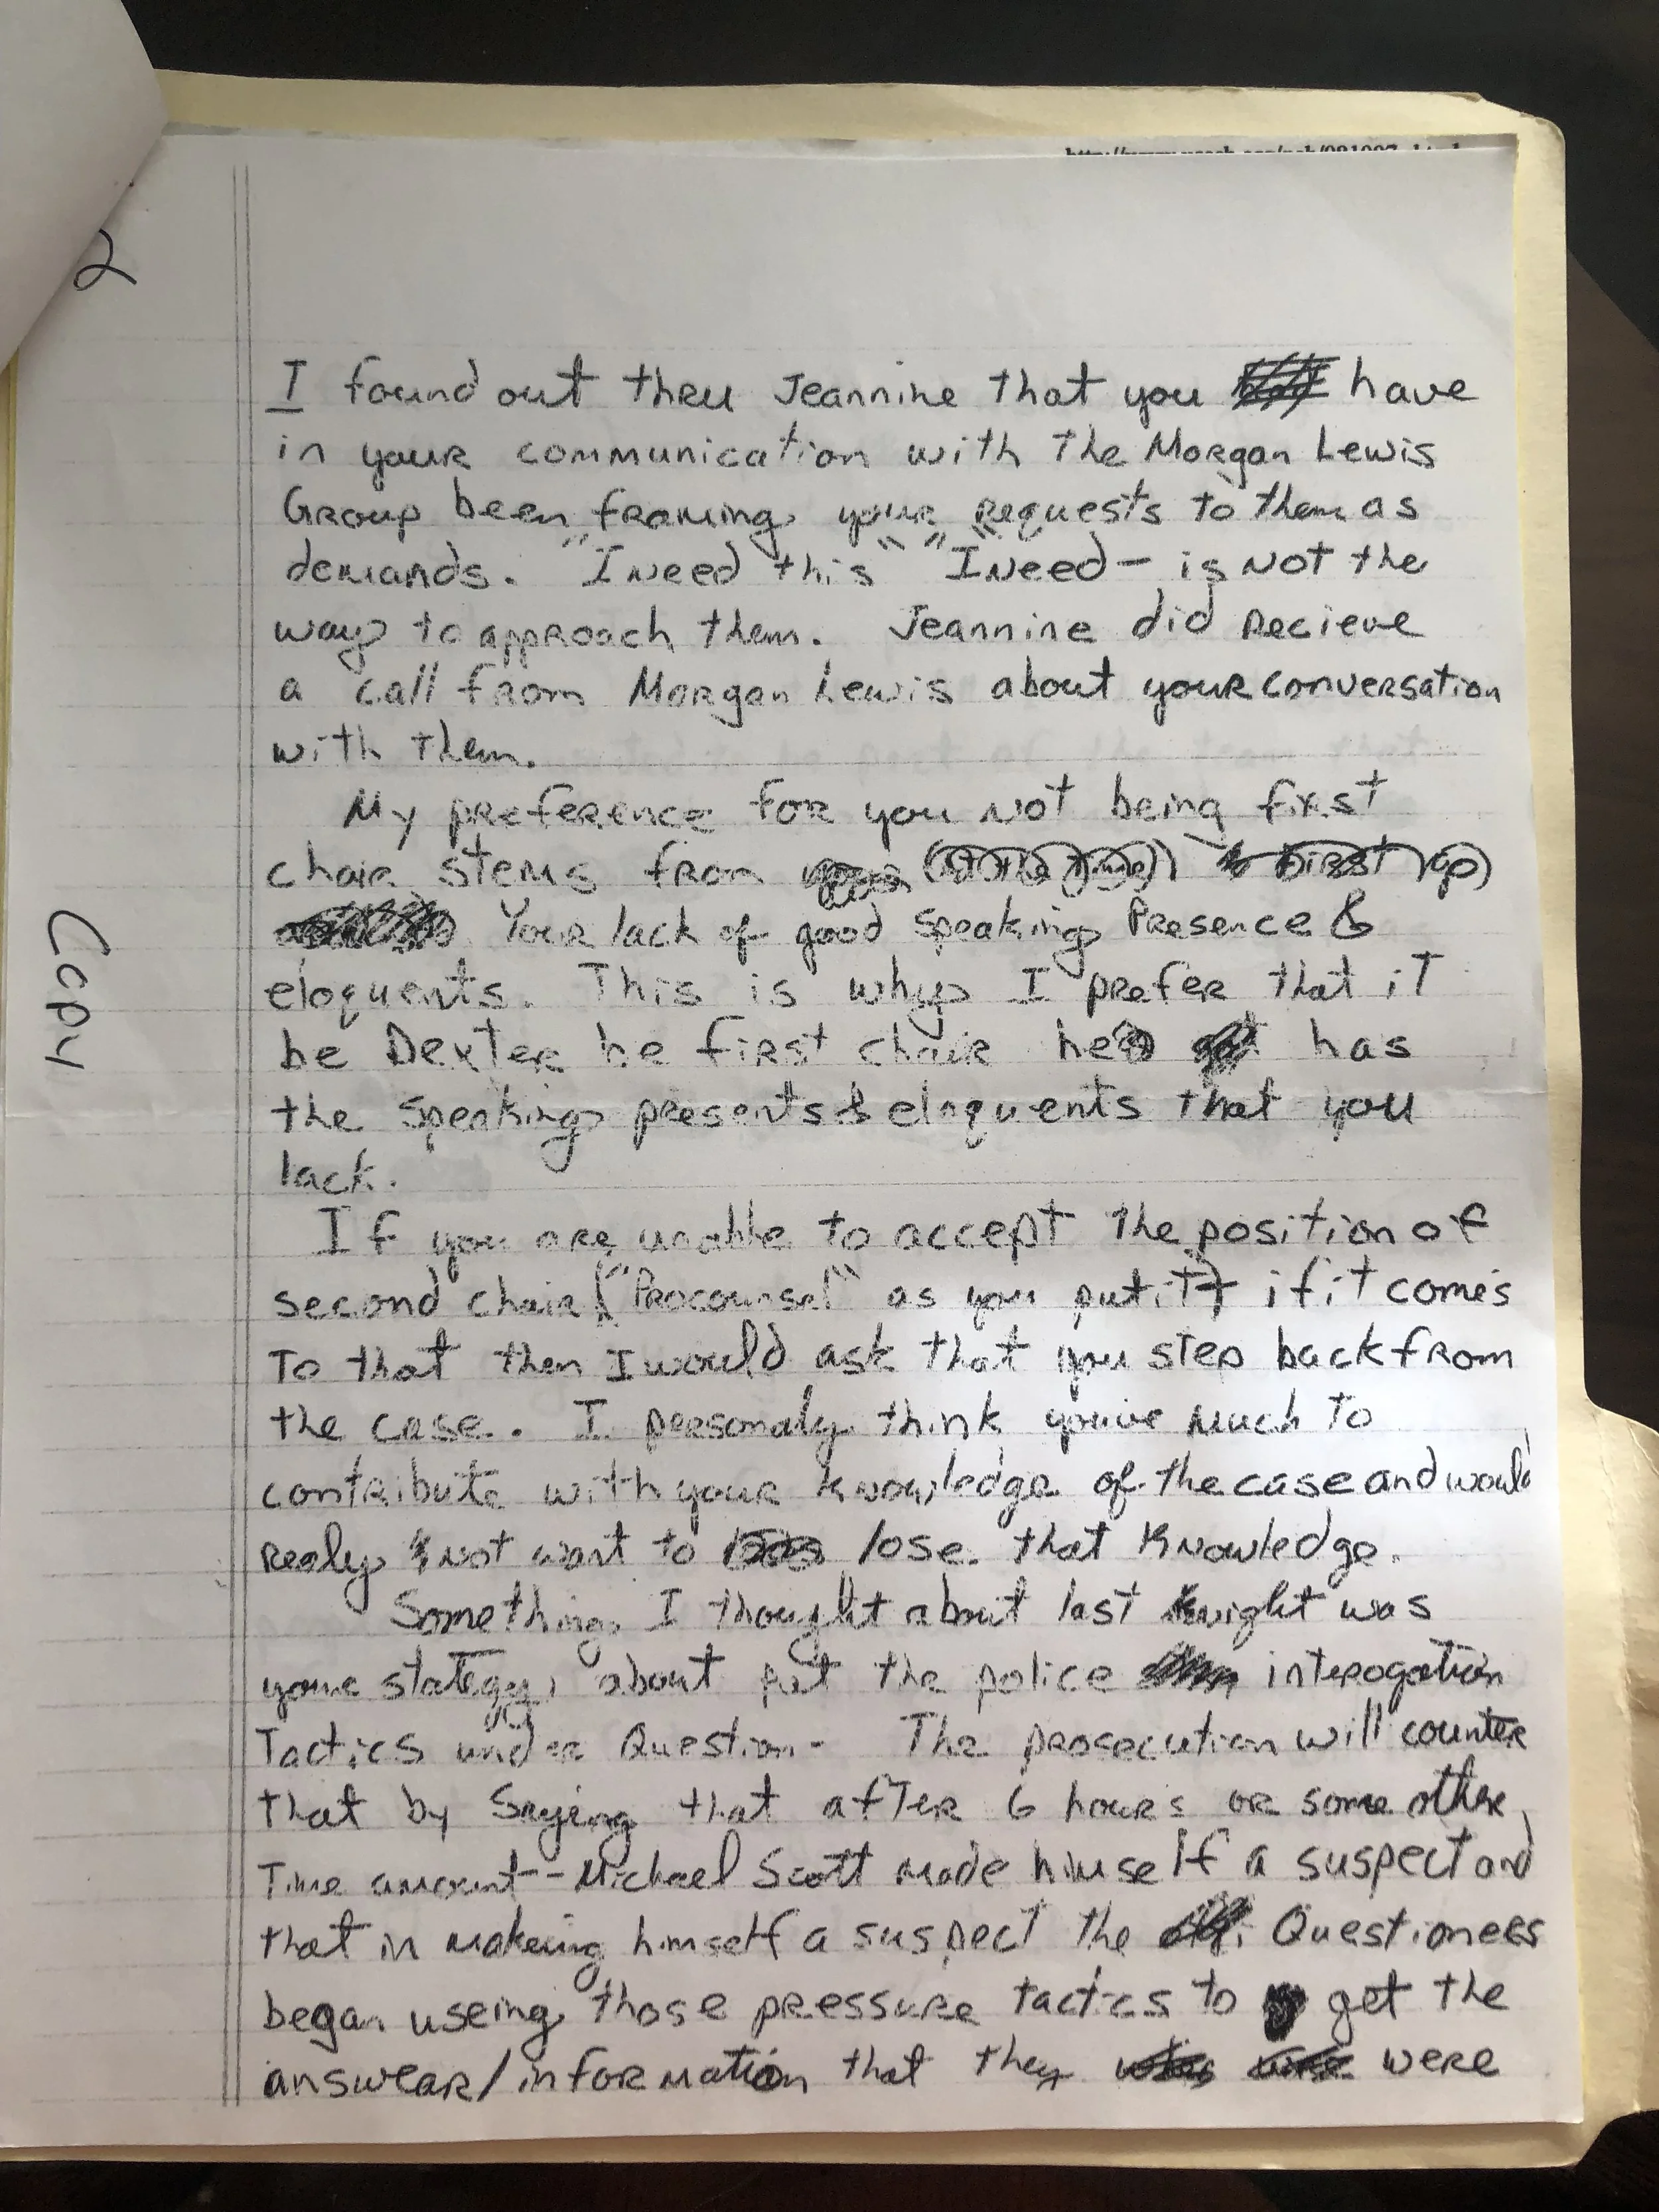 2
Copy
I found out thru Jeannine that you have
in your communication with the Morgan Lewis
Group been framing your requests to them as
demands. "I Need this" "I Need" - is Not the
way to approach them. Jeannine did recieve
a call from Morgan Lewis about your conversation
with them.
My preference for you Not being first
chair stems from
Your lack of good speaking Presence &
eloquents. This is why I prefer that it
be Dexter be first chair he has
the speaking presents & eloquents that you
lack.
If you are unable to accept the position of
second chair ("Procounsel" as you put it) if it comes
To that then I would ask that you step back from
the case. I personaly think you've much to
contribute with your knowledge of the case and would
realy not want to lose that knowledge.
Something I thought about last night was
your stategy, about put the police interogation
Tactics under Question. The prosecution will counter
that by saying that after 6 hours or some other
Time amount - Michael Scott made himself a suspect and
that in makeing himself a suspect the Questioners
began useing those pressure tactics to get the
answear/information that they were